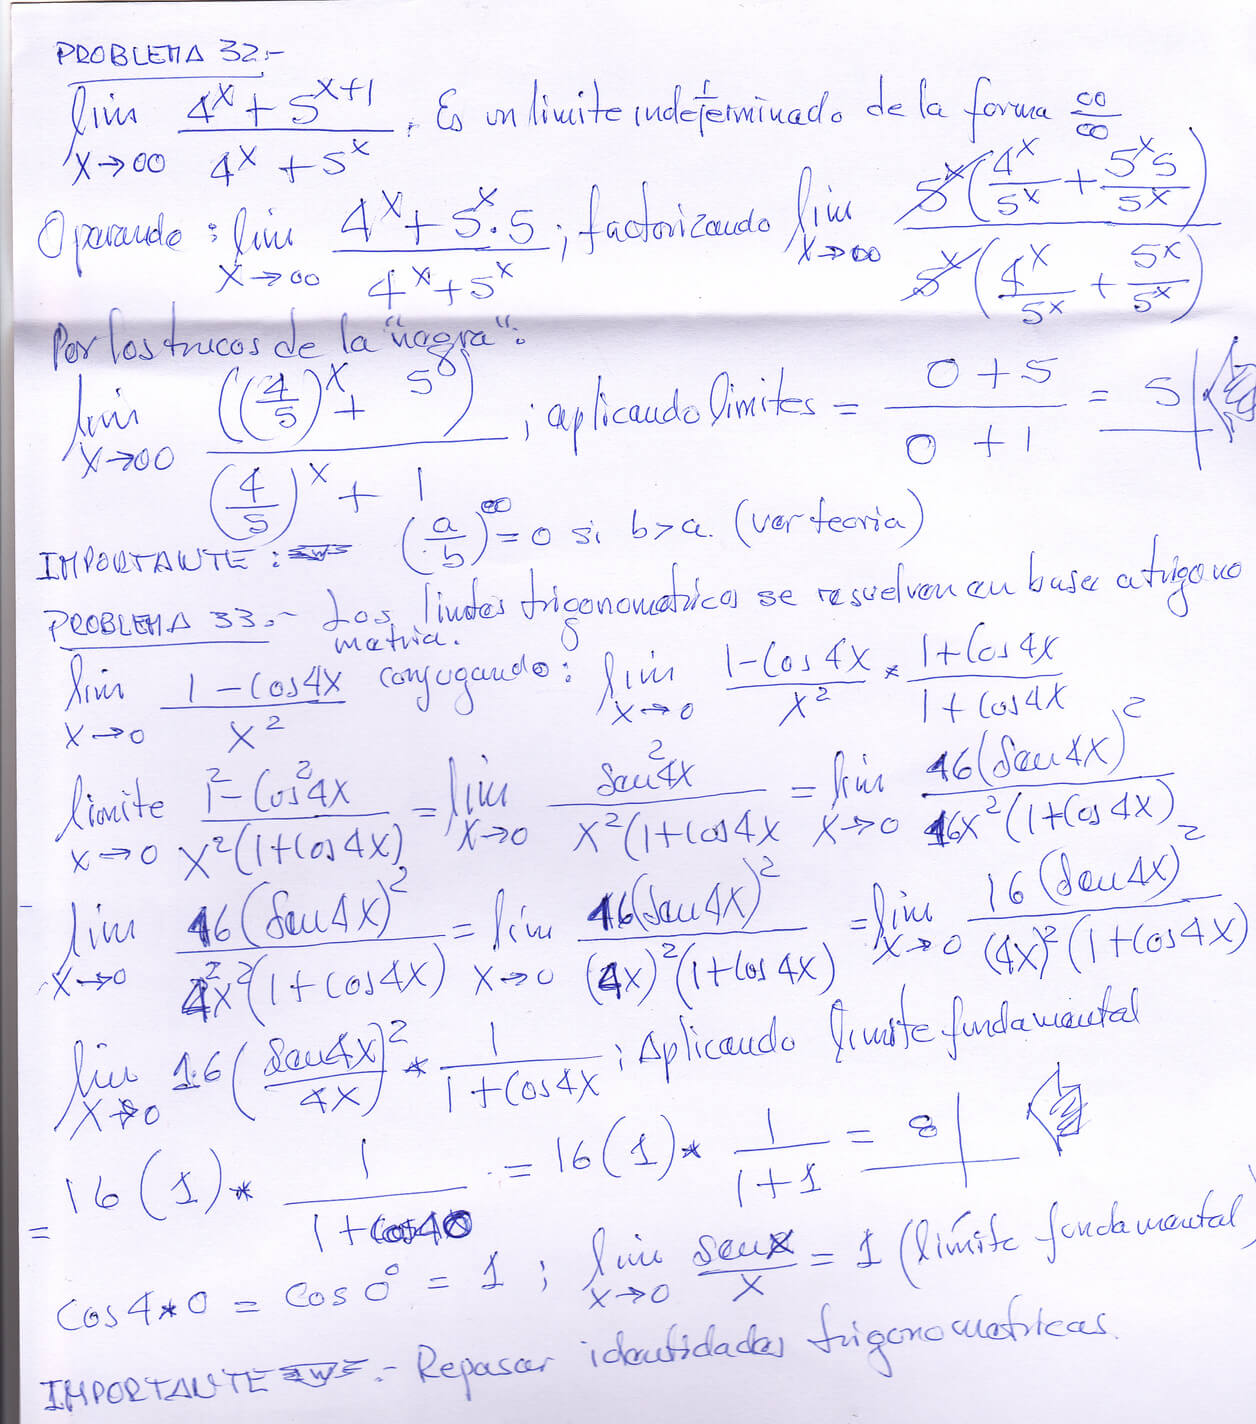 PROBLEMA 32.-
lim x→∞ (4^x + 5^(x+1))/(4^x + 5^x). Es un limite indeterminado de la forma ∞/∞
Operando: lim x→∞ (4^x + 5^x·5)/(4^x + 5^x); factorizando lim x→∞ 5^x(4^x/5^x + 5^x5/5^x)/5^x(4^x/5^x + 5^x/5^x)
Por los trucos de la "nagra":
lim x→∞ ((4/5)^x + 5)/((4/5)^x + 1); aplicando limites = (0 + 5)/(0 + 1) = 5
IMPORTANTE: (a/b)^∞ = 0 si b>a. (ver teoria)
PROBLEMA 33.- Los limites trigonometricos se resuelven en base a trigono
metria.
lim x→0 (1 - Cos4x)/x² conjugando: lim x→0 (1 - Cos4x)/x² * (1 + Cos4x)/(1 + Cos4x)
limite x→0 (1² - Cos²4x)/(x²(1 + Cos4x)) = lim x→0 Sen²4x/(x²(1 + Cos4x = lim x→0 16(Sen4x)²/(16x²(1 + Cos4x)
lim x→0 16(Sen4x)²/(4²x²(1 + Cos4x) = lim x→0 16(Sen4x)²/((4x)²(1 + Cos4x) = lim x→0 16(Sen4x)²/((4x)²(1 + Cos4x)
lim x→0 16(Sen4x/4x)² * 1/(1 + Cos4x); Aplicando limite fundamental
= 16(1) * 1/(1 + Cos40) = 16(1) * 1/(1 + 1) = 8
Cos4*0 = Cos0° = 1; lim x→0 Senx/x = 1 (límite fundamental)
IMPORTANTE.- Repasar identidades trigonometricas.